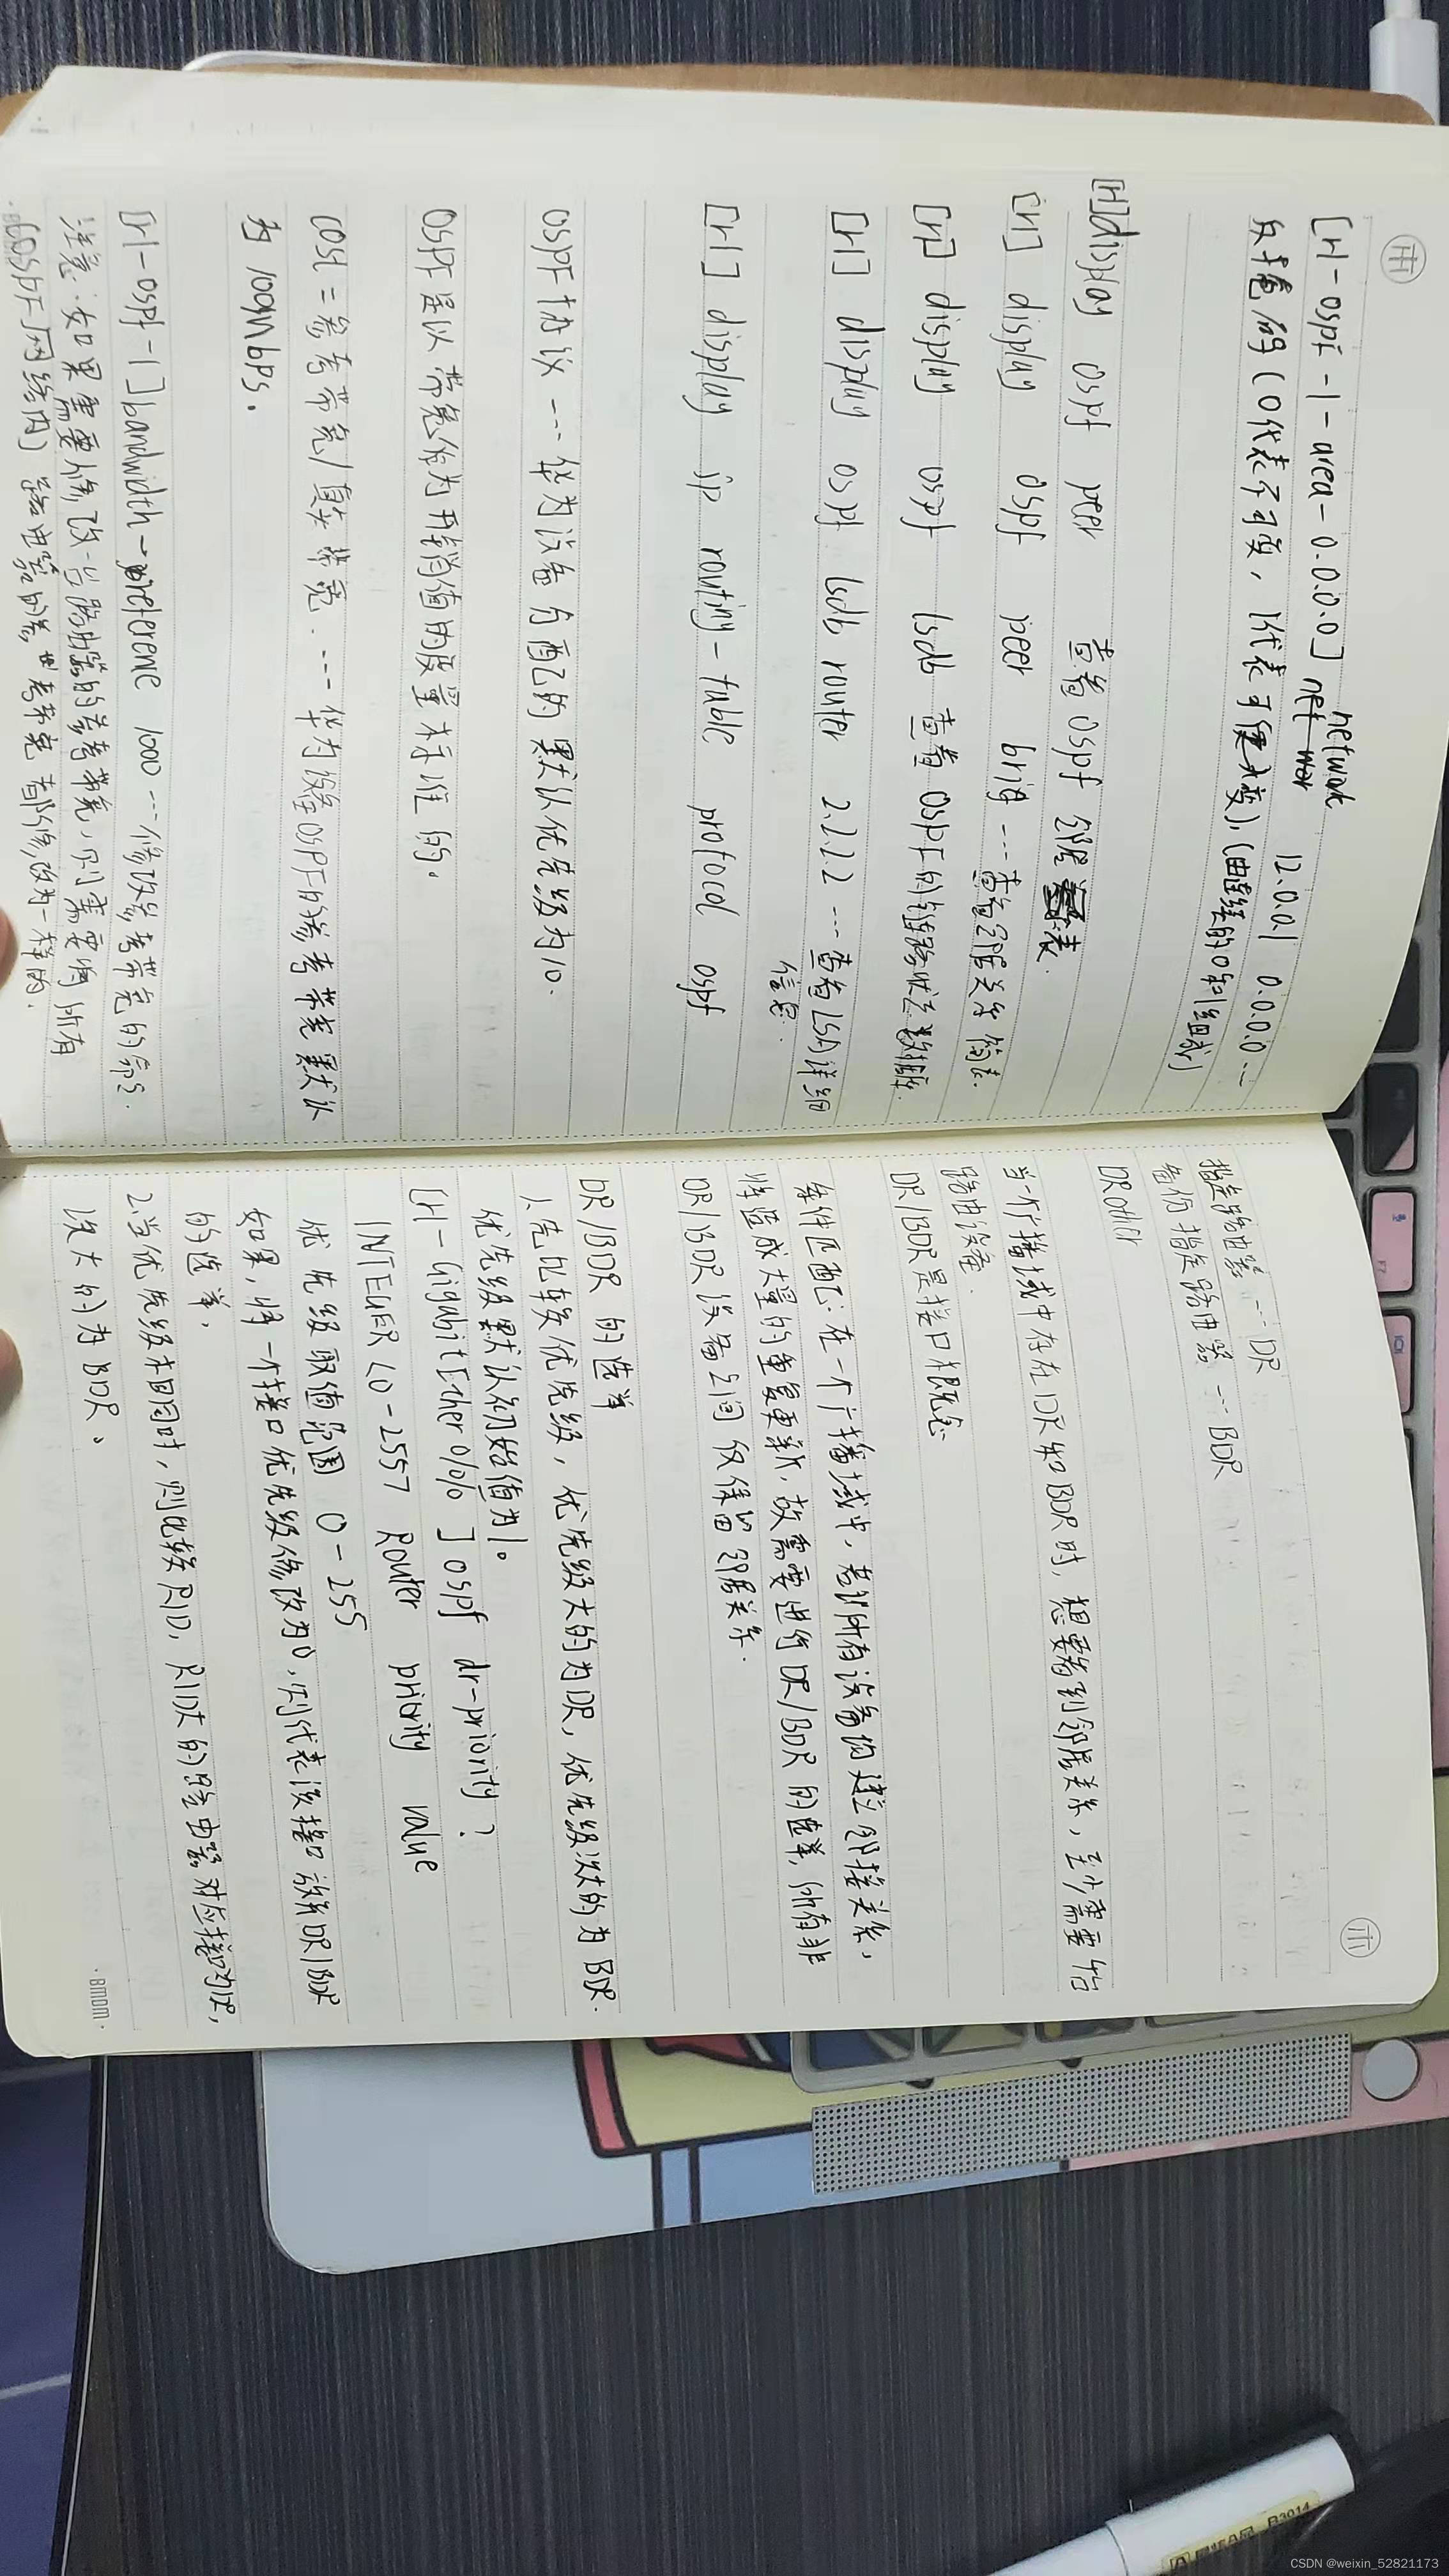 [r1-ospf-1-area-0.0.0.0] network 12.0.0.1 0.0.0.0 ---
反掩码(0代表不可变,1代表可变),(由连续的0和1组成)
[r1]display ospf peer 查看OSPF邻居表.
[r1] display ospf peer brief --- 查看邻居关系简表.
[r1] display ospf lsdb 查看OSPF的链路状态数据库.
[r1] display ospf lsdb router 2.2.2.2 --- 查看LSA详细
信息.
[r1] display ip routing-table protocol ospf
OSPF协议 --- 华为设备分配的默认优先级为10.
OSPF是以带宽作为开销值的度量标准的。
cost = 参考带宽/真实带宽 --- 华为设备OSPF的参考带宽默认
为100Mbps.
[r1-ospf-1]bandwidth-reference 1000 --- 修改参考带宽的命令.
注意:如果需要修改一台路由器的参考带宽,则需要将所有
(OSPF网络内)路由器的参考带宽都修改为一样的.
指定路由器 --- DR
备份指定路由器 --- BDR
DRother
当一个广播域中存在DR和BDR时,想要看到邻居关系,至少需要4台
路由设备.
DR/BDR是接口概念
条件匹配:在一个广播域中,若所有设备均建立邻接关系,
将造成大量的重复更新,故需要进行DR/BDR的选举,所有非
DR/BDR设备之间仅保留邻居关系.
DR/BDR的选举
1.先比较优先级,优先级大的为DR,优先级次大的为BDR.
优先级默认初始值为1。
[r1-GigabitEther0/0/0] ospf dr-priority ?
INTEGER<0-255> Router priority value
优先级取值范围 0-255
如果,将一个接口优先级修改为0,则代表该接口放弃DR/BDR
的选举,
2.当优先级相同时,则比较RID,RID大的路由器对应接口为DR,
次大的为BDR。
·BMDM·
CSDN @weixin_52821173